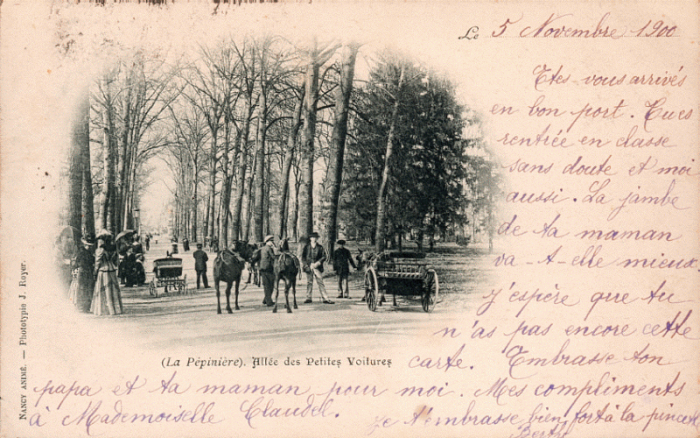 Le 5 Novembre 1900
Etes-vous arrivés
en bon port. Tu es
rentrée en classe
sans doute et moi
aussi. La jambe
de ta maman
va-t-elle mieux
J'espère que tu
n'as pas encore cette
carte. Embrasse ton
papa et ta maman pour moi. Mes compliments
à Mademoiselle Claudel. Je t'embrasse bien fort à la pincette
Berthe
(La Pépinière). Allée des Petites Voitures
NANCY ANIMÉ. — Phototypie J. Royer.